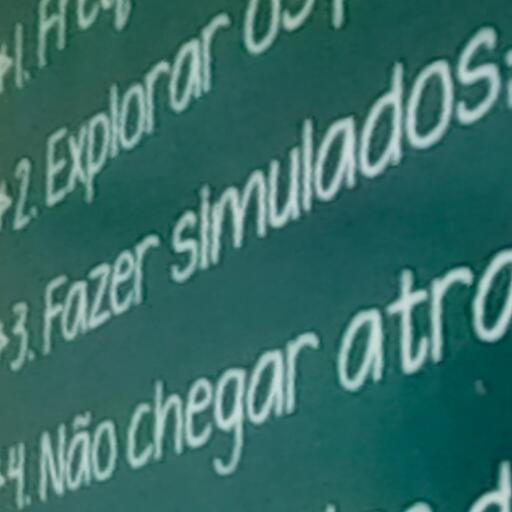 1. Freq
2. Explorar os p
3. Fazer simulados;
4. Não chegar atra